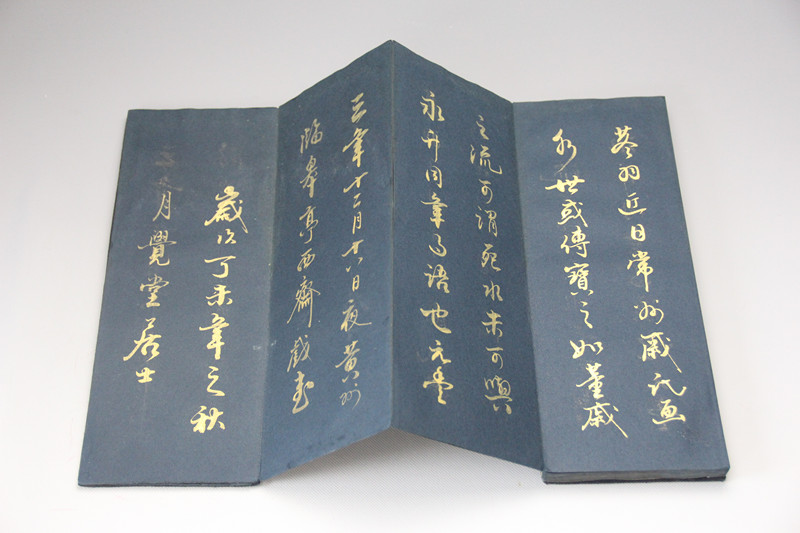 董羽近日常州戚氏画
水世或傳寶之如董戚
之流可謂死水未可與
永升同年而語也元豐
三年十二月十八日夜黄州
臨皋亭西齋戲書
歲次丁未年之秋
月覺堂居士